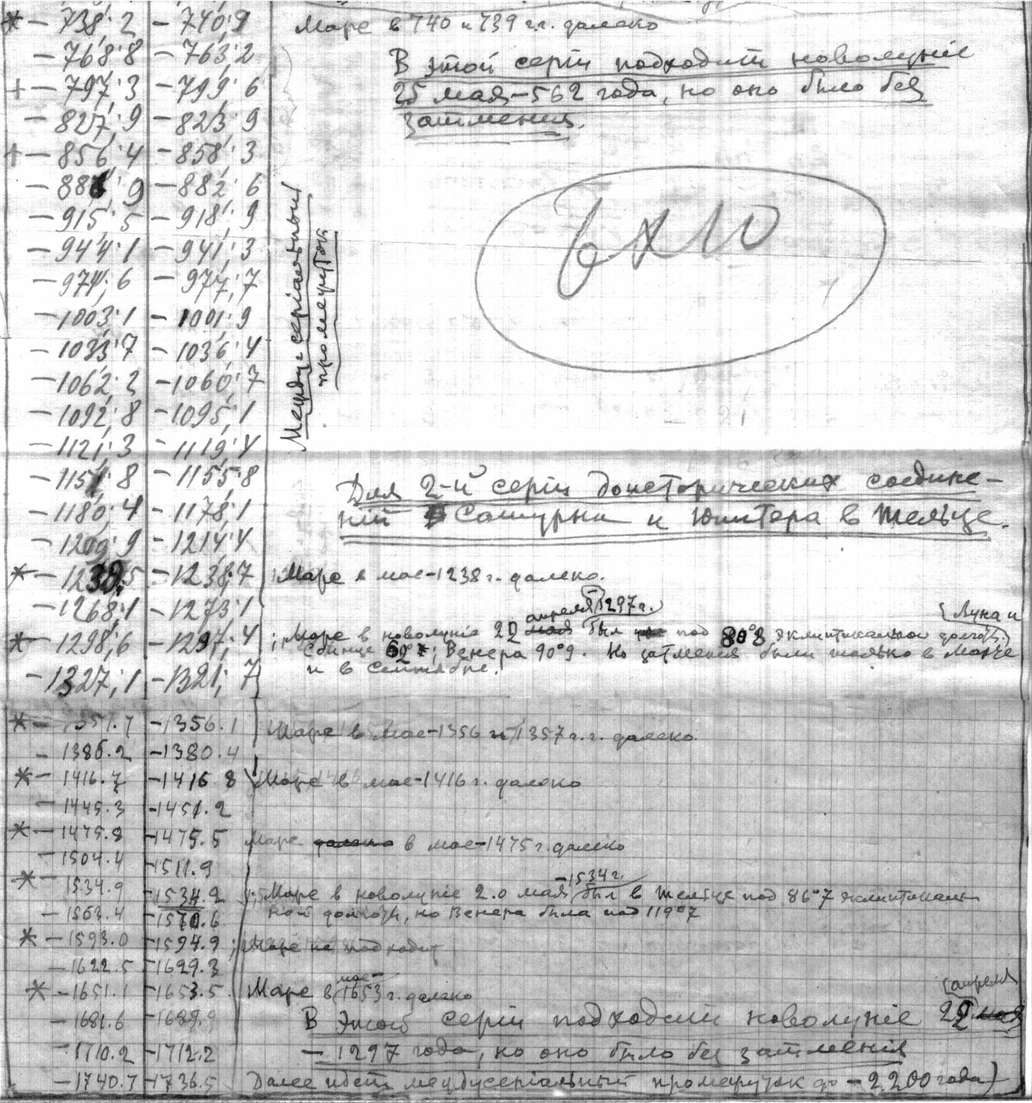 * −738.2 −740,9 Марс в 740 и 739 гг. далеко
−768.8 −763.2
В этой серіи подходит новолуніе
+ −797.3 −799.6
25 мая −562 года, но оно было без
−827,9 −823.9
затменія.
+ −856.4 −858.3
−886.9 −882.6
−915.5 −918.9
6X10
−944.1 −941.3
−974,6 −977,7
−1003.1 −1001.9
−1033.7 −1036.4
−1062.2 −1060.7
−1092.8 −1095.1
−1121.3 −1119.4
Междусеріальный
промежуток
−1151.8 −1155.8
Для 2-й серіи доисторических соедине-
−1180.4 −1178.1
ній Сатурна и Юпитера в Тельце.
−1209.9 −1214.4
* −1238.5 −1238.7 Марс в мае −1238 г. далеко.
−1268.1 −1273.1
апреля −1297 г. (Луна и
* −1298.6 −1297.4 ; Марс в новолуніе 22 мая был под 80°8 эклиптикальной долготы.
Солнце ; Венера 90°9. Но затменія были только в Марте
−1327,1 −1321.7 и в Сентябре.
* −1357.7 −1356.1 Марс в мае −1356 и 1357 г.г. далеко.
−1386.2 −1380.4
* −1416.7 −1416.8 Марс в мае −1416 г. далеко
−1445.3 −1451.2
* −1475.8 −1475.5 Марс далеко в мае −1475 г. далеко
−1504.4 −1511.9
−1534 г.
* −1534.9 −1534.2 ; Марс в новолуніе 2.0 мая был в Тельце под 86°7 эклиптикаль-
−1563.4 −1570.6 ной долготы, но Венера была под 119°7
* −1593.0 −1594.9 ; Марс не подходит
−1622.5 −1629.3
мае−
* −1651.1 −1653.5 Марс в 1653 г. далеко
апреля
−1681.6 −1689.9 В этой серіи подходит новолуніе 22 мая
−1710.2 −1712.2 −1297 года, но оно было без затменія
−1740.7 −1736.5 Далее идет междусеріальный промежуток до −2200 года)